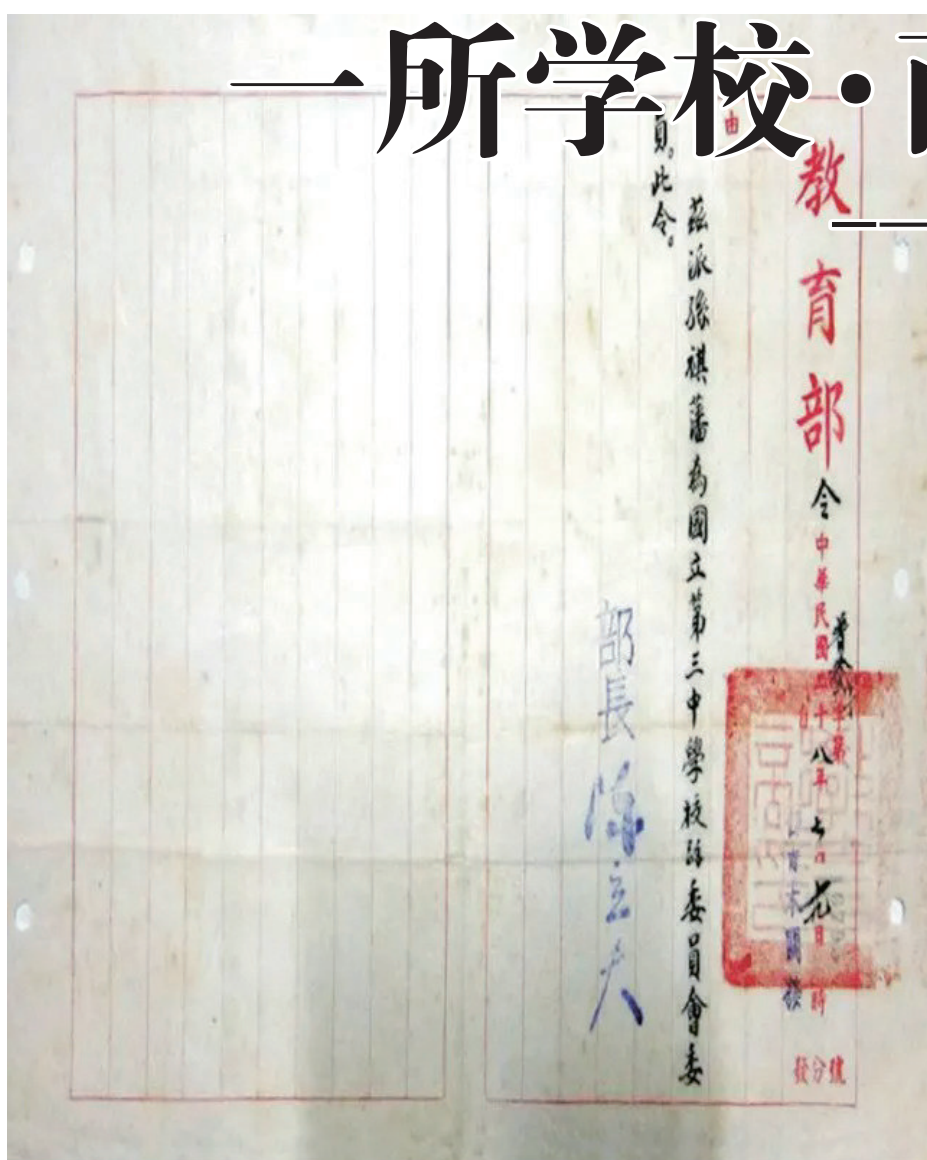 一所学校·
——
教育部令
中華民國二十八年七月
字第
號
日
時
分
發
由
茲派祺藩為國立第三中學校務委員會委
員。此令。
部長 陳立夫